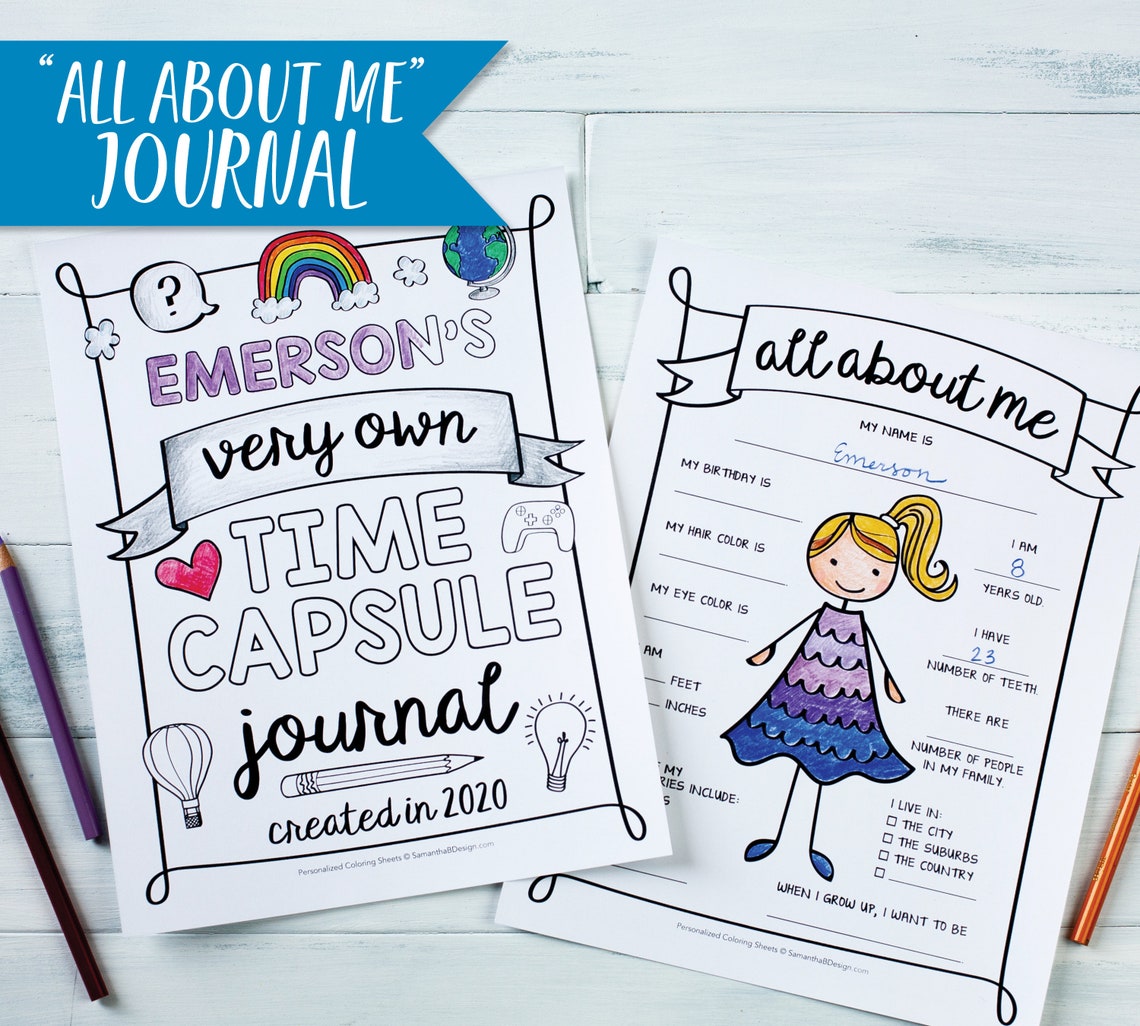 “ALL ABOUT ME”
JOURNAL
?
EMERSON'S
very own
TIME
CAPSULE
journal
created in 2020
Personalized Coloring Sheets © SamanthaBDesign.com
all about me
MY NAME IS
Emerson
MY BIRTHDAY IS
MY HAIR COLOR IS
MY EYE COLOR IS
AM
FEET
INCHES
MY
RIES INCLUDE:
S
I AM
8
YEARS OLD.
I HAVE
23
NUMBER OF TEETH.
THERE ARE
NUMBER OF PEOPLE
IN MY FAMILY.
I LIVE IN:
THE CITY
THE SUBURBS
THE COUNTRY
WHEN I GROW UP, I WANT TO BE
Personalized Coloring Sheets © SamanthaBDesign.com